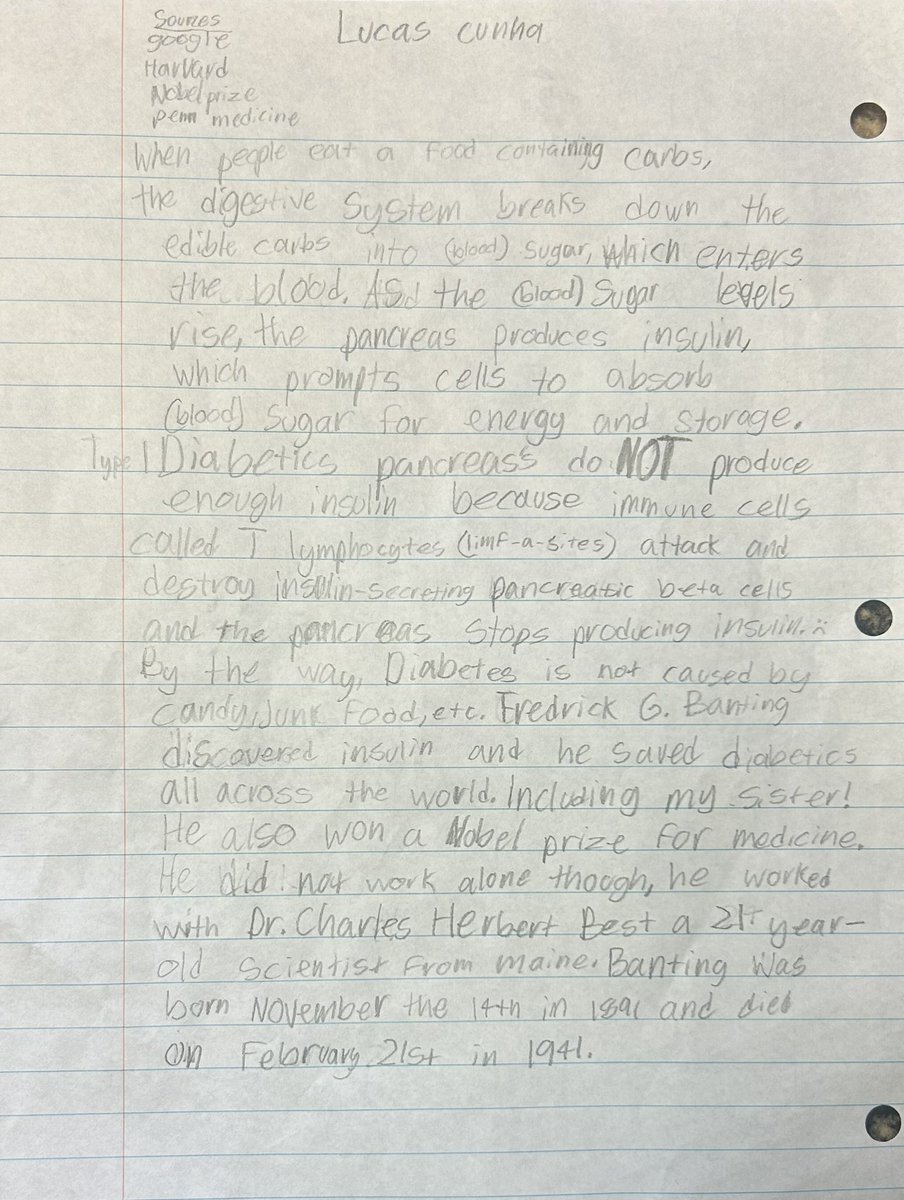 Sources
google
Harvard
Nobel prize
penn medicine
Lucas cunha
When people eat a food containing carbs,
the digestive system breaks down the
edible carbs into (blood) sugar, which enters
the blood. As the (blood) Sugar levels
rise, the pancreas produces insulin,
which prompts cells to absorb
(blood) sugar for energy and storage.
Type 1 Diabetics pancreas's do NOT produce
enough insulin because immune cells
called T lymphocytes (limf-a-sites) attack and
destroy insulin-secreting pancreatic beta cells
and the pancreas stops producing insulin. :(
By the way, Diabetes is not caused by
candy, Junk Food, etc. Fredrick G. Banting
discovered insulin and he saved diabetics
all across the world. Including my sister!
He also won a Nobel prize for medicine.
He did not work alone though, he worked
with Dr. Charles Herbert Best a 21+ year-
old scientist from maine. Banting was
born November the 14th in 1891 and died
on February 21st in 1941.